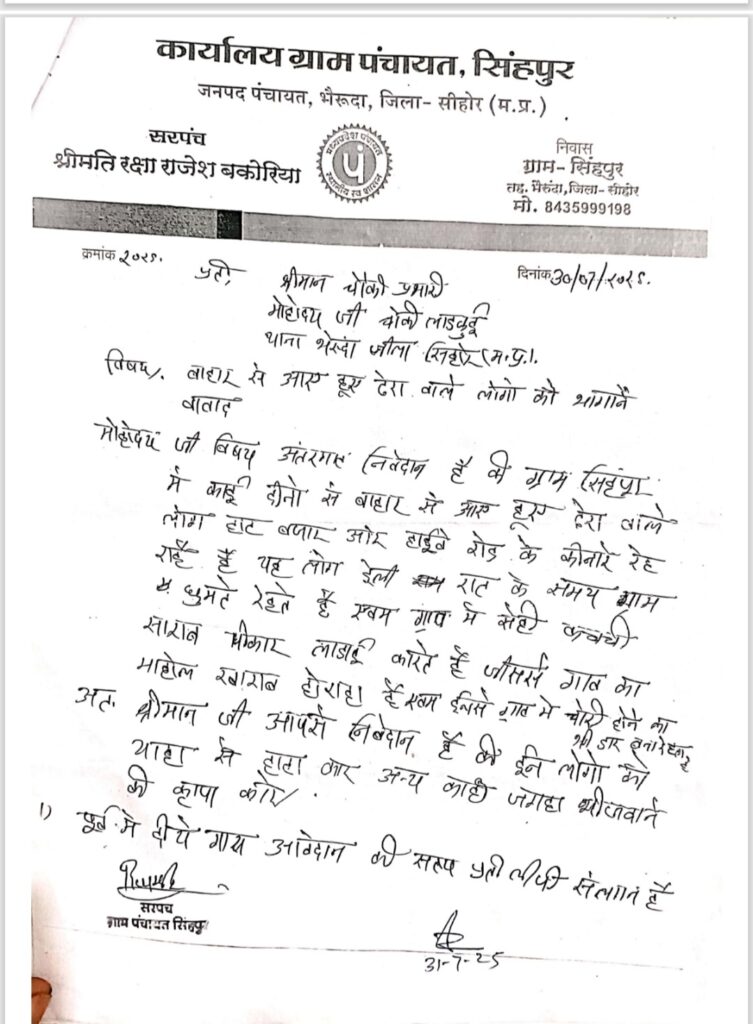 कार्यालय ग्राम पंचायत, सिंहपुर
जनपद पंचायत, भैरूदा, जिला- सीहोर (म.प्र.)
सरपंच
श्रीमति रक्षा राजेश बकोरिया
मध्यप्रदेश पंचायत
पं
स्थानीय स्व शासन
निवास
ग्राम- सिंहपुर
तह. भैरुंदा, जिला- सीहोर
मो. 8435999198
क्रमांक २०२५.
दिनांक 30/07/२०२५.
प्रती,
श्रीमान चौकी प्रभारी
मोहोदय जी चोकी लाडकुई
थाना भेरुंदा जीला सिहोर (म.प्र.)
विषय. बाहार से आए हूए डेरा वाले लोगो को भागाने
बावाद
मोहोदय जी विषय अंतरगत निवेदान है की ग्राम सिहंपुर
मे काई दीनो से बाहार से आए हूए डेरा वाले
लोग हाट बजार ओर हाईवे रोड के कीनारे रेह
राहे है यह लोग डेली रात के समय ग्राम
मे घुमते रेहते है एवम ग्राम मे सेही कच्ची
साराब पीकार लाडाई कारते है जीससे गाव का
माहोल खाराब होराहा है एवम ईनसे ग्राव मे चोरी होने का
भी डार बना रेहता है
अतः श्रीमान जी आपसे निवेदान है की ईन लोगो को
याहा से हाटा कार अन्य काही जगाहा भीजवाने
की कृपा करे.
1) पूर्व मे दीये गाय आवेदान की सत्य प्रती लीपी संलागन है
सरपंच
ग्राम पंचायत सिंहपुर
31-7-25